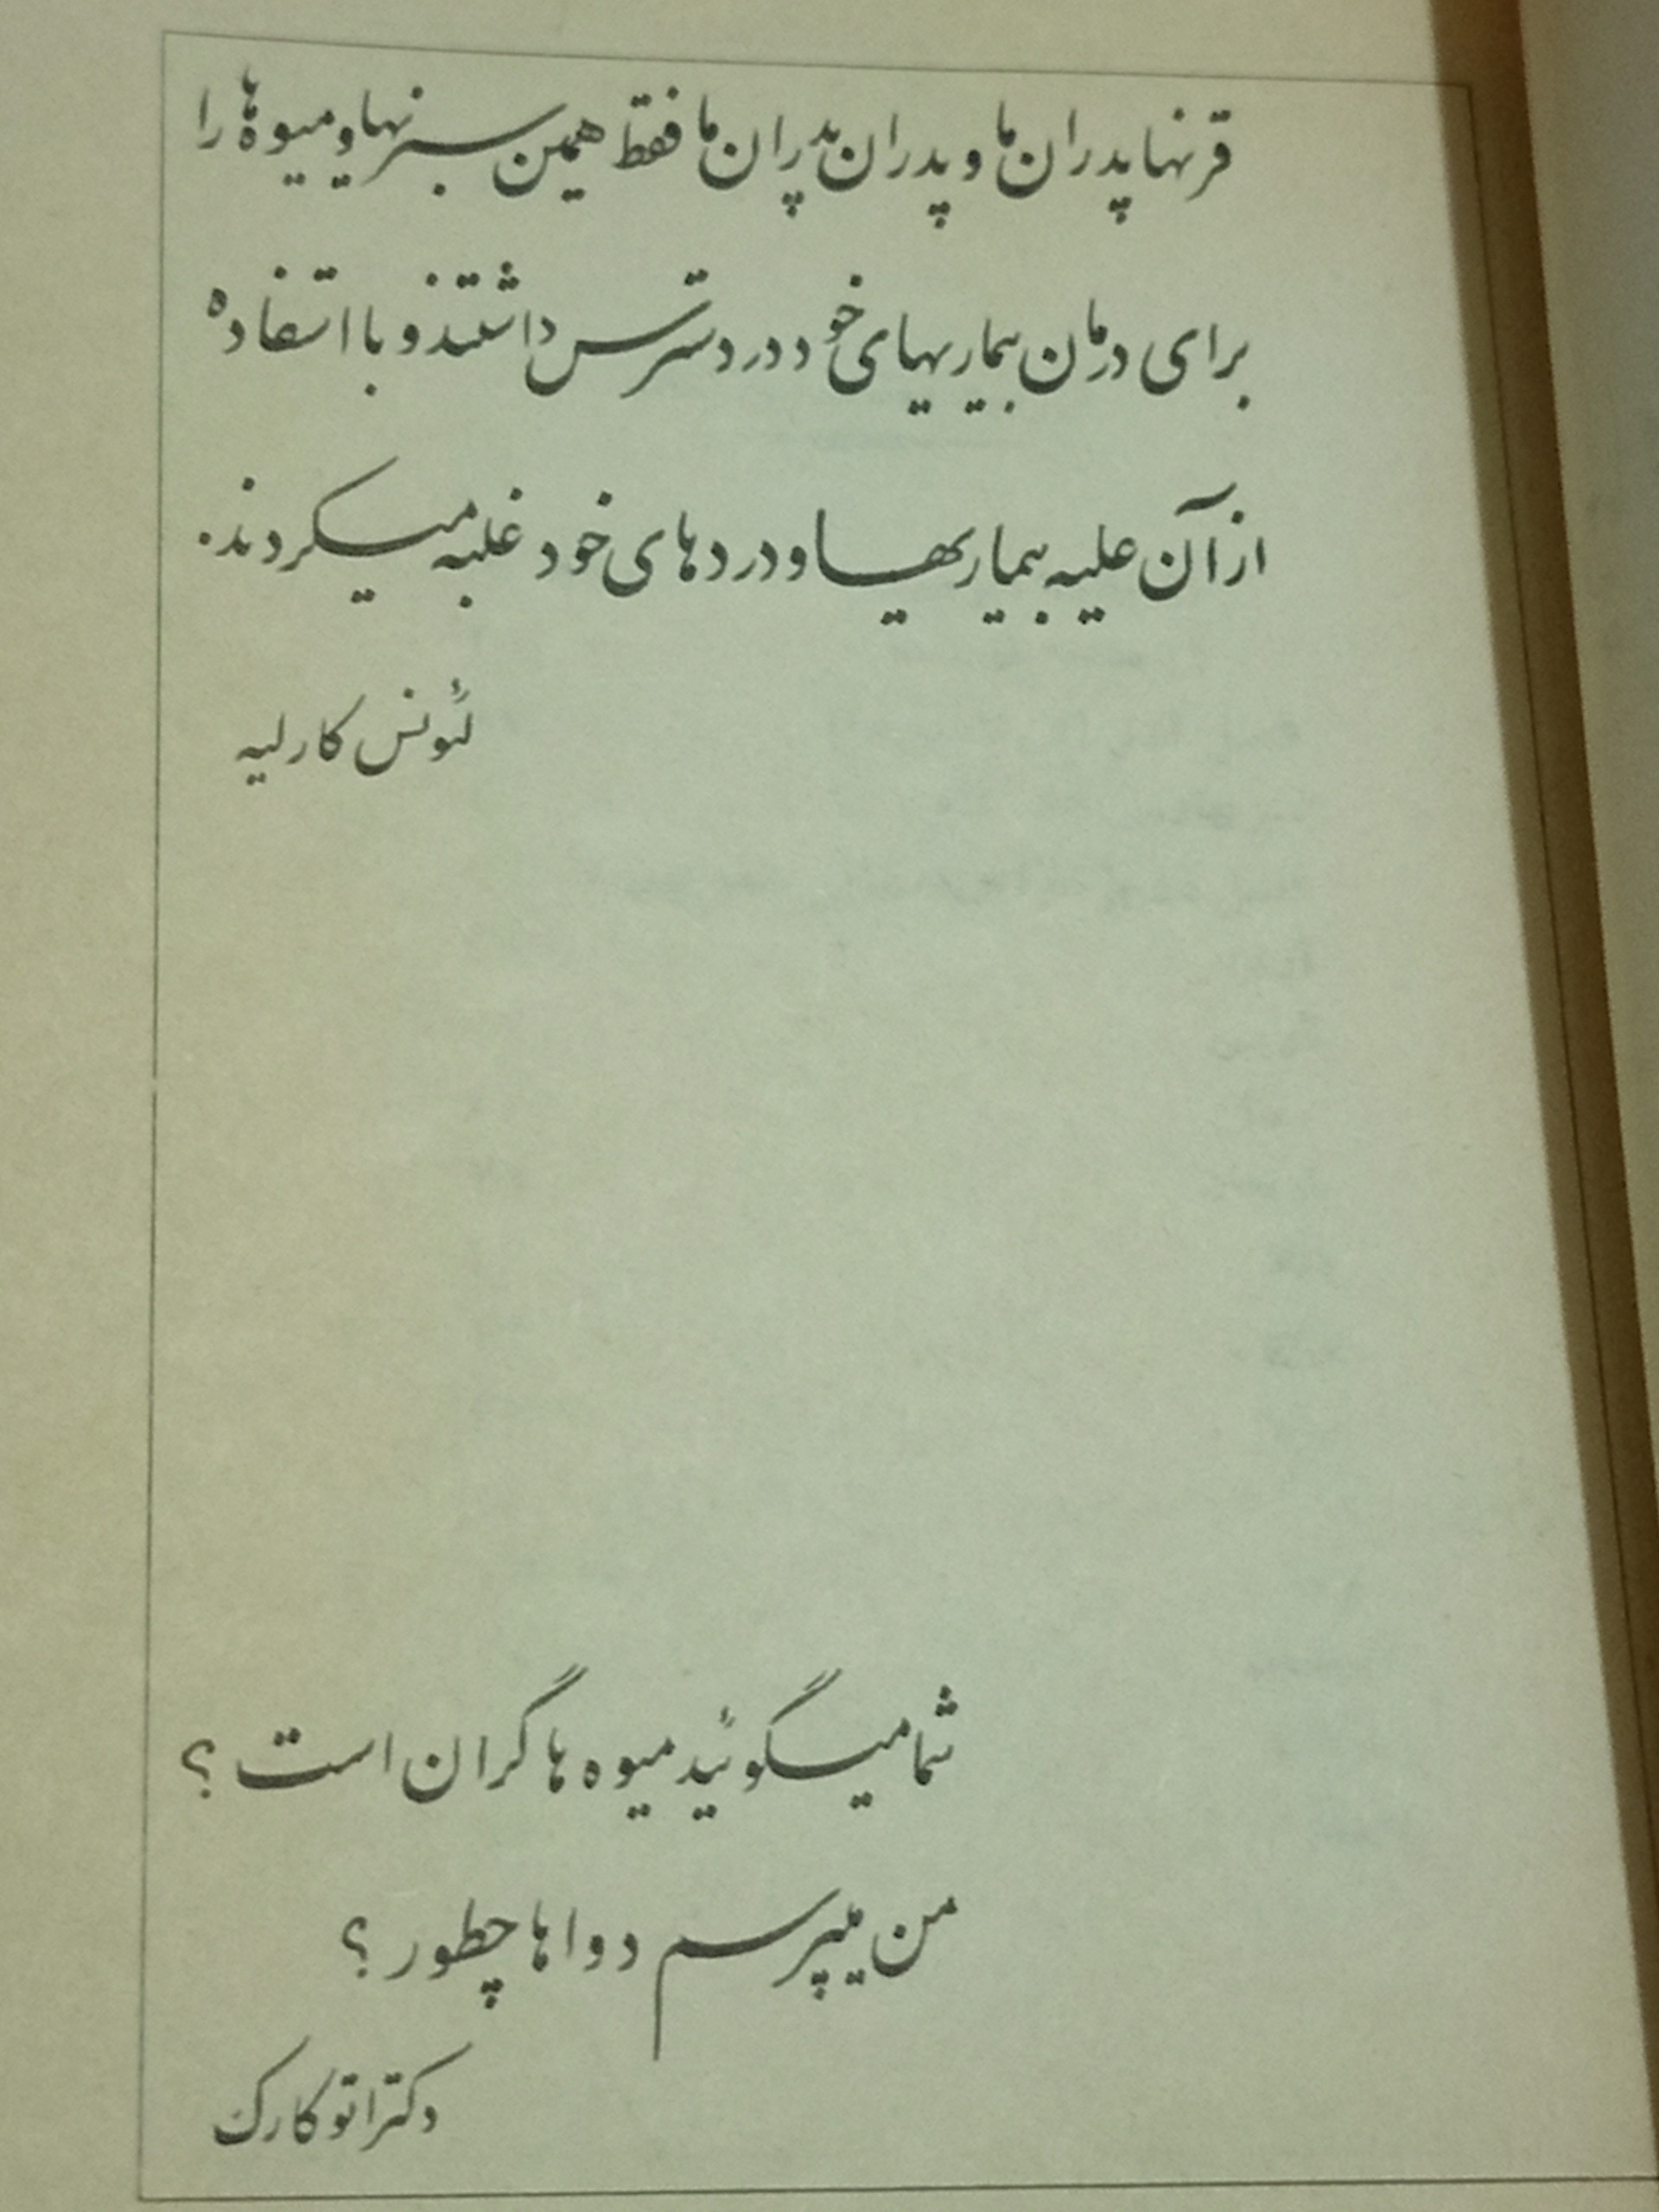 قرنها پدران ما و پدران پدران ما فقط همین سبزیها و میوه ها را
برای درمان بیماریهای خود در دسترس داشتند و با استفاده
از آن علیه بیماریها و دردهای خود غلبه میکردند.
لئونس کارلیه
شما میگوئید میوه ها گران است ؟
من میپرسم دواها چطور ؟
دکتر اتوکارک